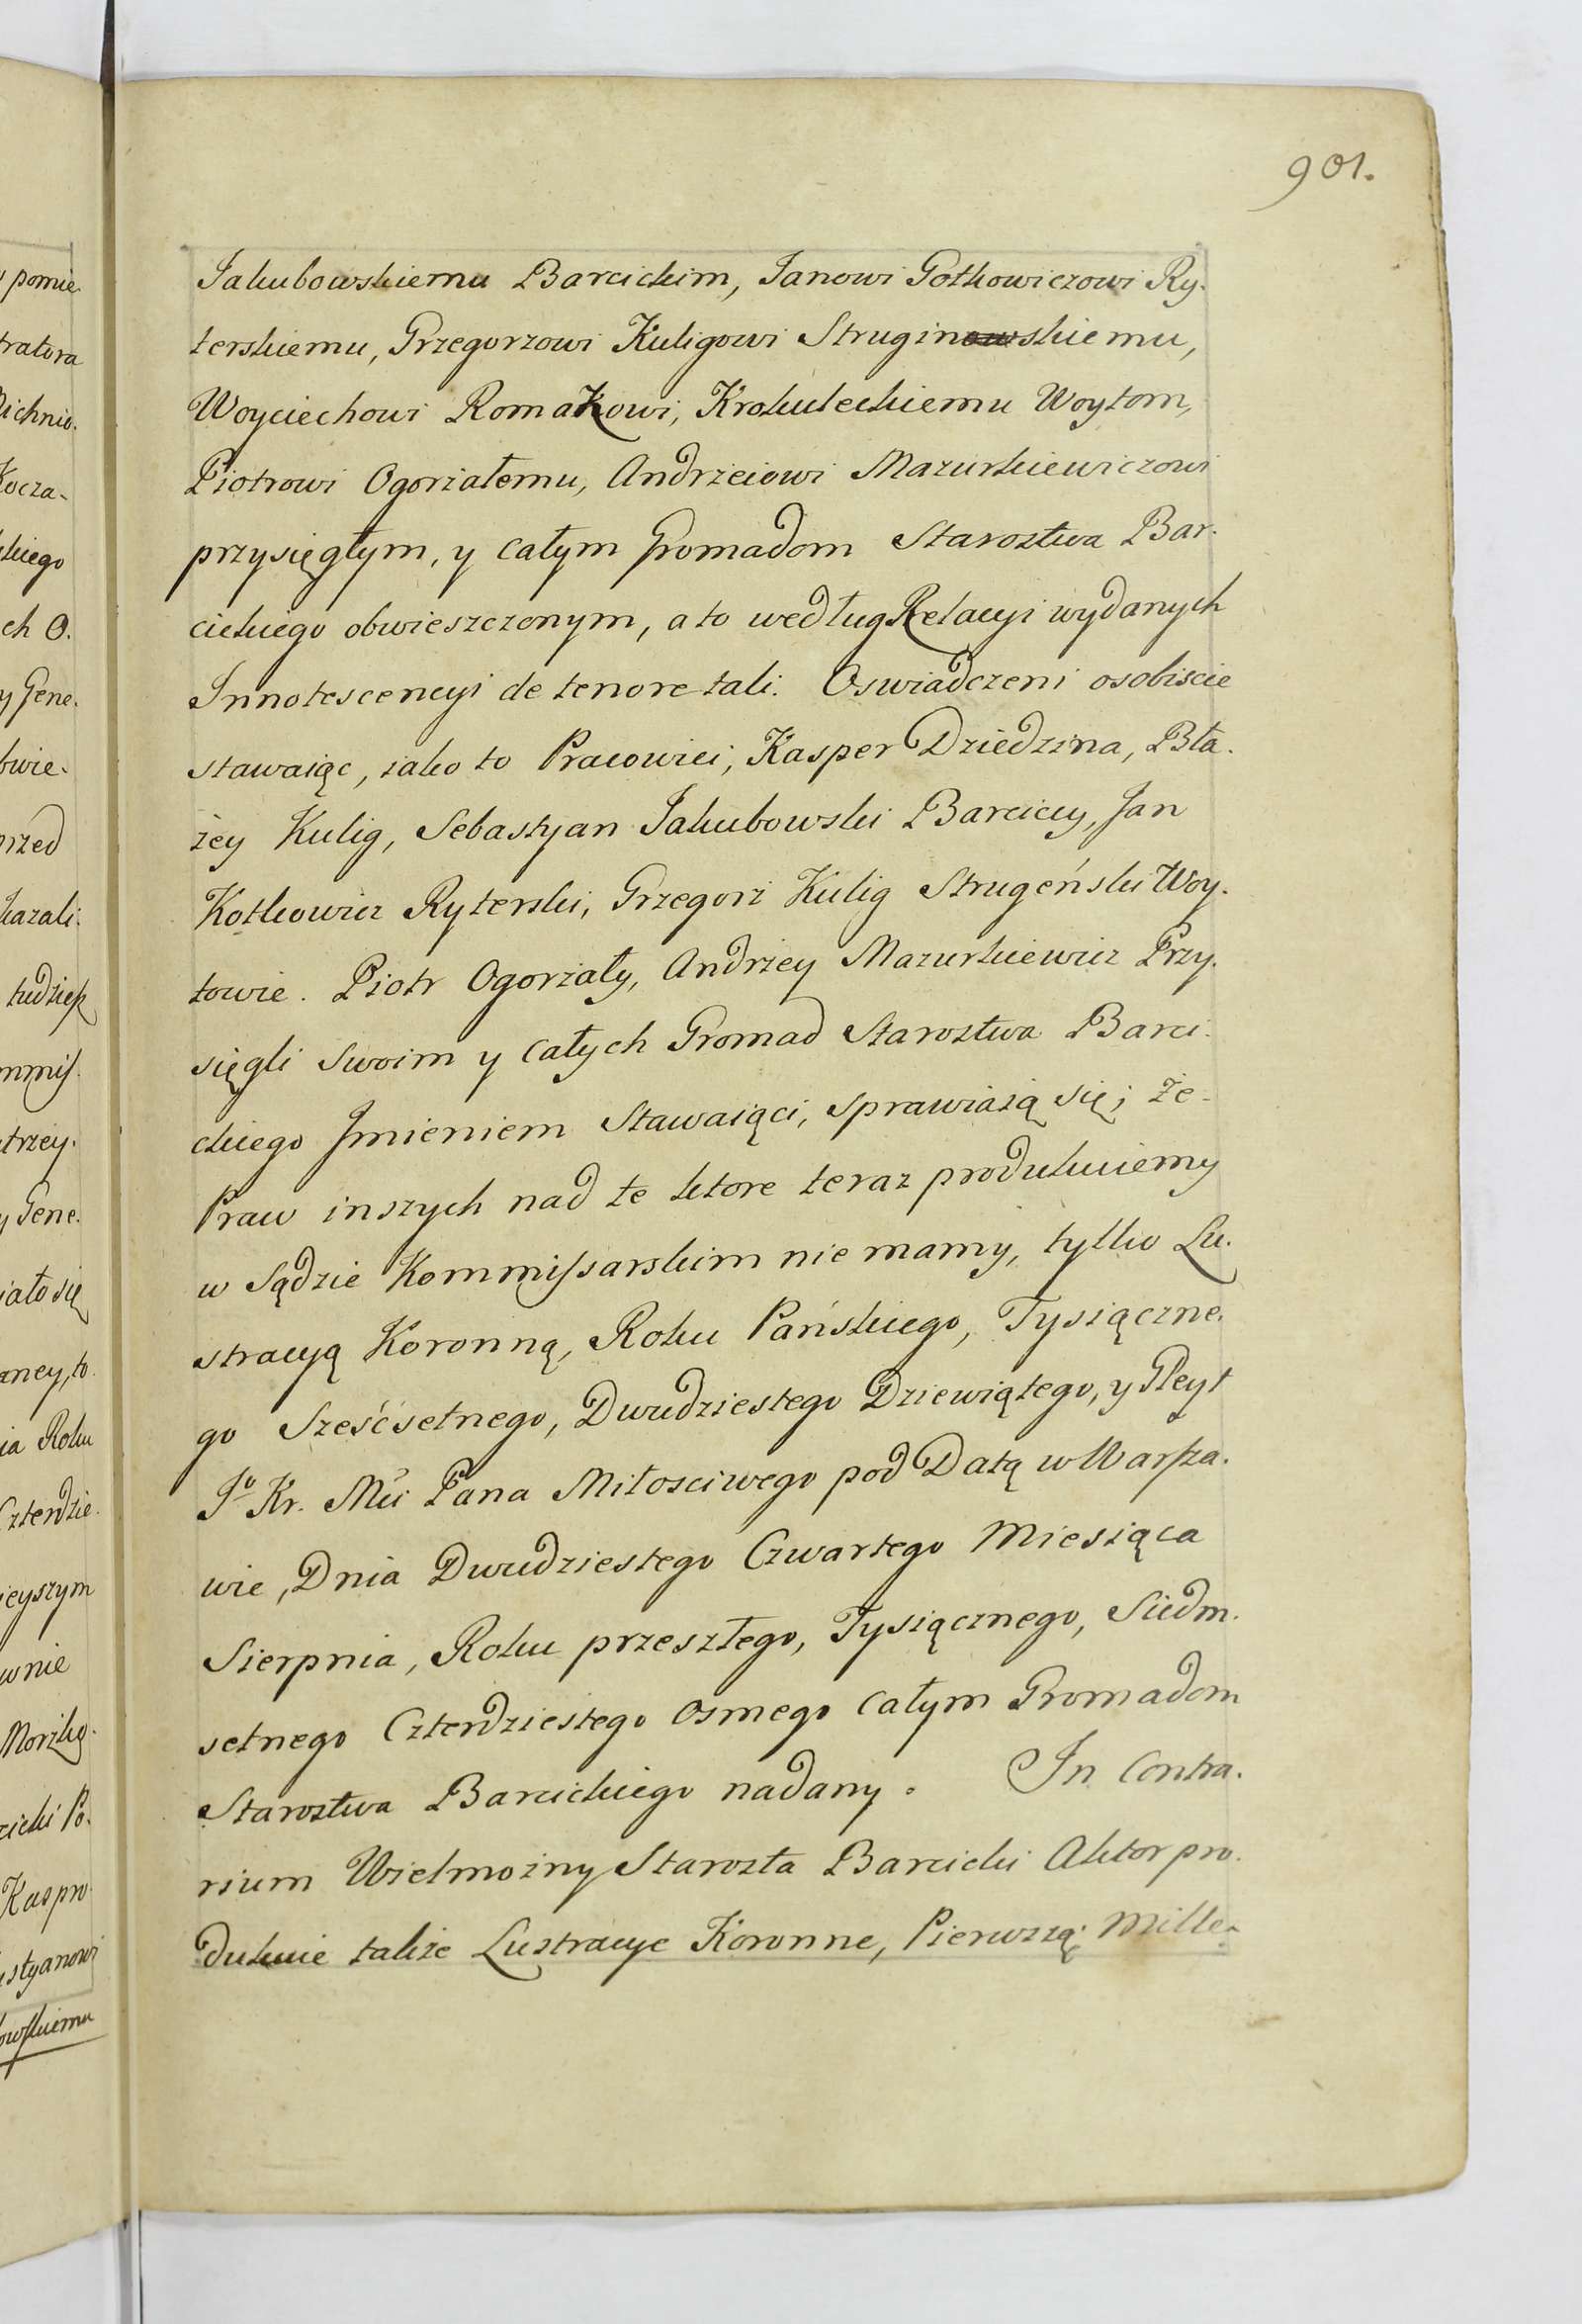 901.
Jakubowskiemu Barcickim, Janowi Gotkowiczowi Ry-
terskiemu, Grzegorzowi Kuligowi Struginowskiemu,
Woyciechowi Romakowi, Krokuleckiemu Woytom,
Piotrowi Ogorzałemu, Andrzeiowi Mazurkiewiczowi
przysięgłym, y całym Gromadom Starostwa Bar-
cickiego obwieszczonym, a to według Relacyi wydanych
Innotescencyi de tenore tali. Oswiadczeni osobiscie
stawaiąc, iako to Pracowici, Kasper Dziedzina, Bła-
żey Kulig, Sebastyan Jakubowski Barciccy, Jan
Kotkowicz Ryterski, Grzegorz Kulig Strugeński Woy-
towie. Piotr Ogorzały, Andrzey Mazurkiewicz Przy-
sięgli Swoim y całych Gromad Starostwa Barci-
ckiego Jmieniem Stawaiąci, sprawiaią się; że
Praw inszych nad te ktore teraz produkuiemy
w Sądzie Kommissarskim nie mamy, tylko Lu-
stracyą Koronną, Roku Pańskiego, Tysiączne-
go Sześćsetnego, Dwudziestego Dziewiątego, y Gleyt
Jo Kr. Mci Pana Miłosciwego pod Datą w Warsza-
wie, Dnia Dwudziestego Czwartego Miesiąca
Sierpnia, Roku przeszłego, Tysiącznego, Siedm-
setnego Czterdziestego Osmego całym Gromadom
Starostwa Barcickiego nadany. In Contra-
rium Wielmożny Starosta Barcicki Aktor pro-
dukuie także Lustracye Koronne, Pierwszą Mille-
pomie
tratora
Kocza-
kiego
ch O.
y Gene.
bwie-
przed
kazali.
tudziesz
mmis-
trzey-
y Gene.
iało się
aney, to
ia Roku
Czterdzie-
ieyszym
wnie
cicki Po-
Kaspro-
styanowi
owskiemu